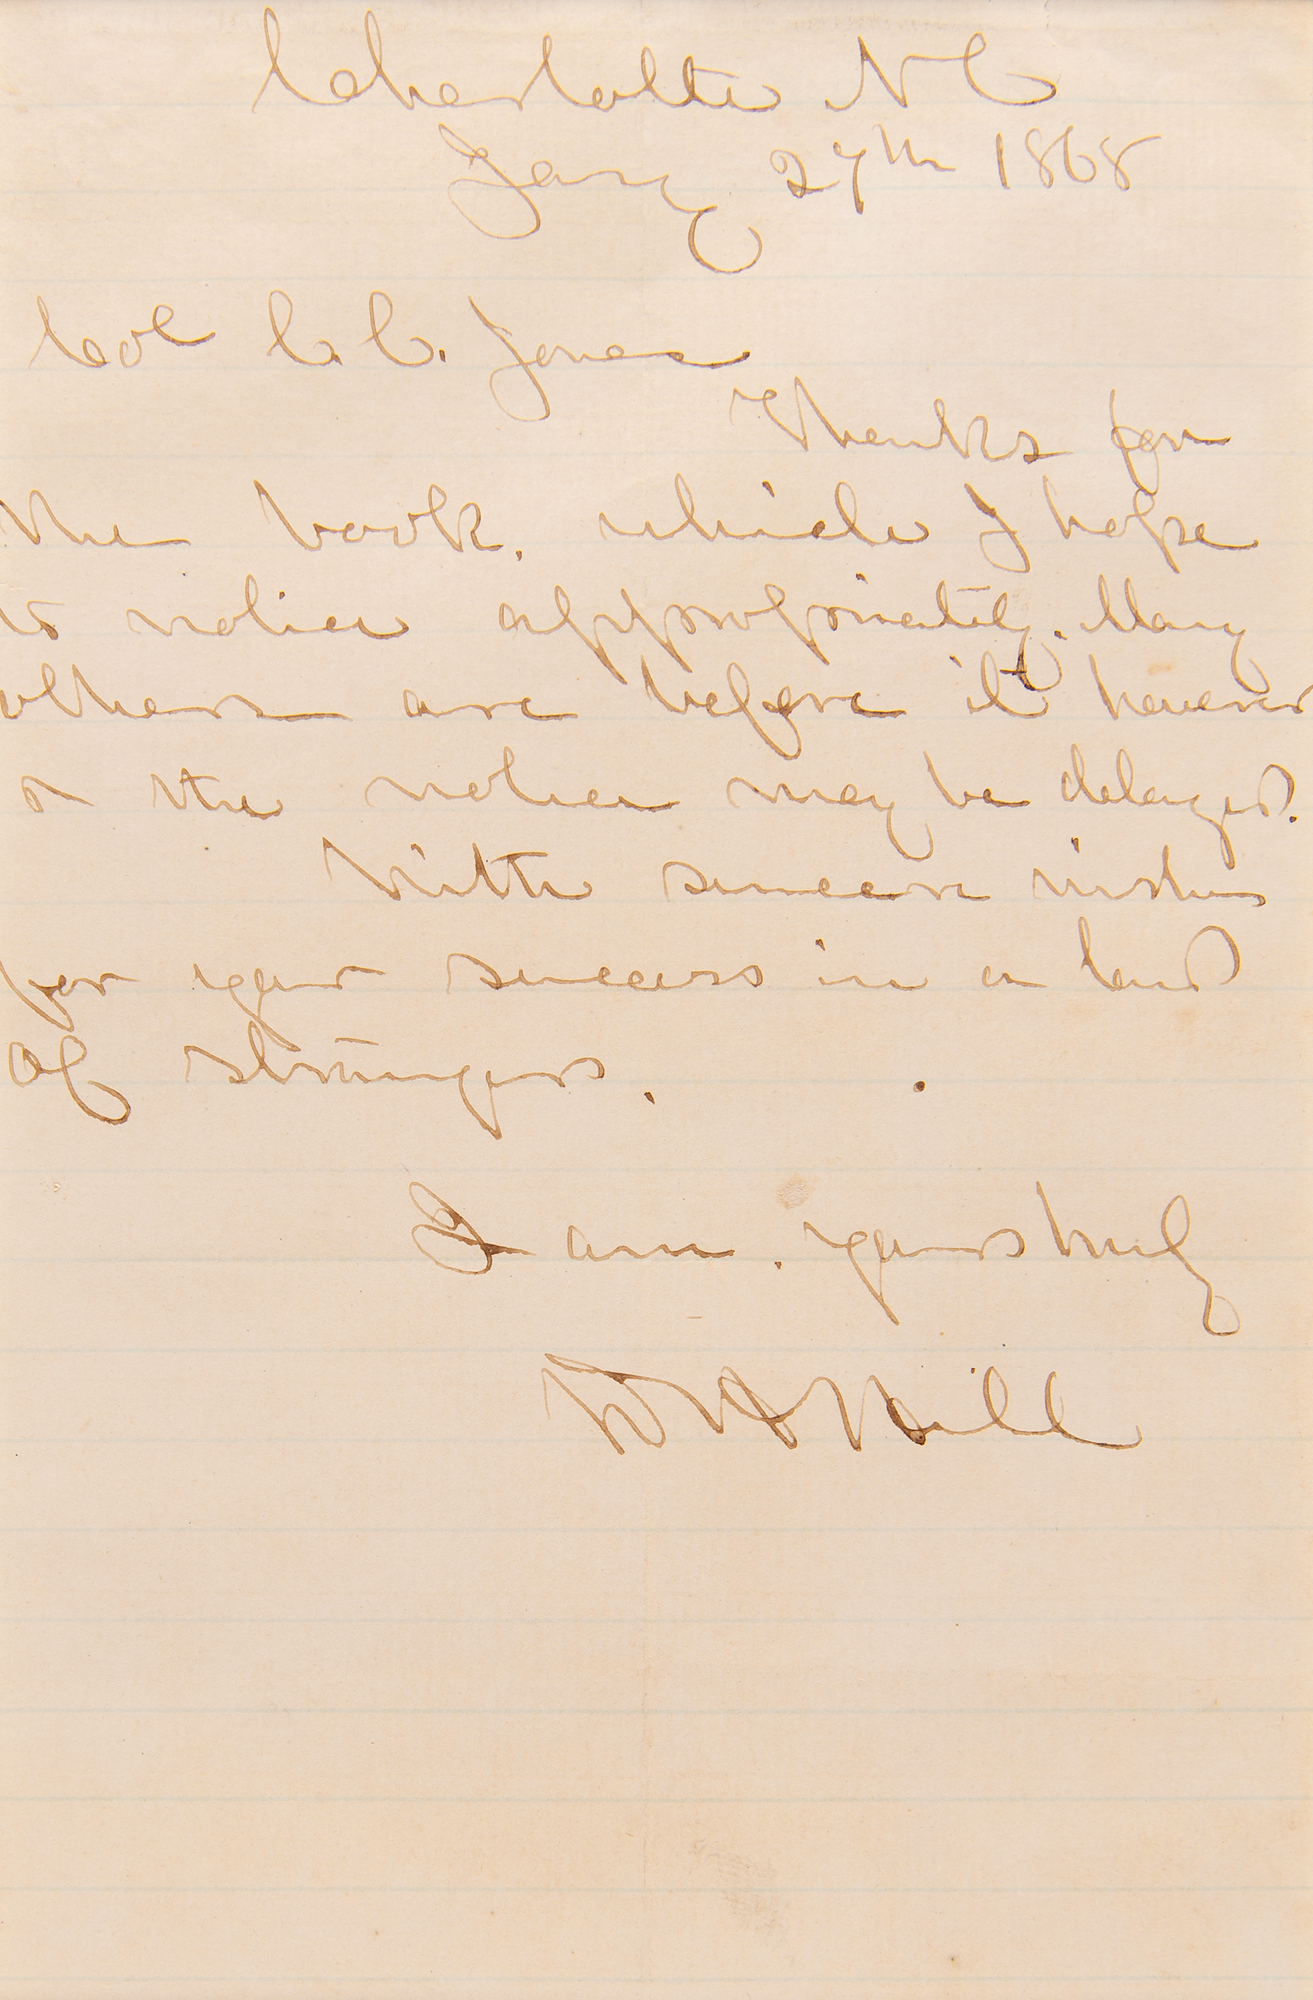 Charlotte N C
Jany 27th 1868
Col C. C. Jones
Thanks for
the book, which I hope
to notice appropriately. Many
others are before it however
& the notice may be delayed.
With sincere wishes
for your success in a land
of strangers.
I am yours truly
D H Hill